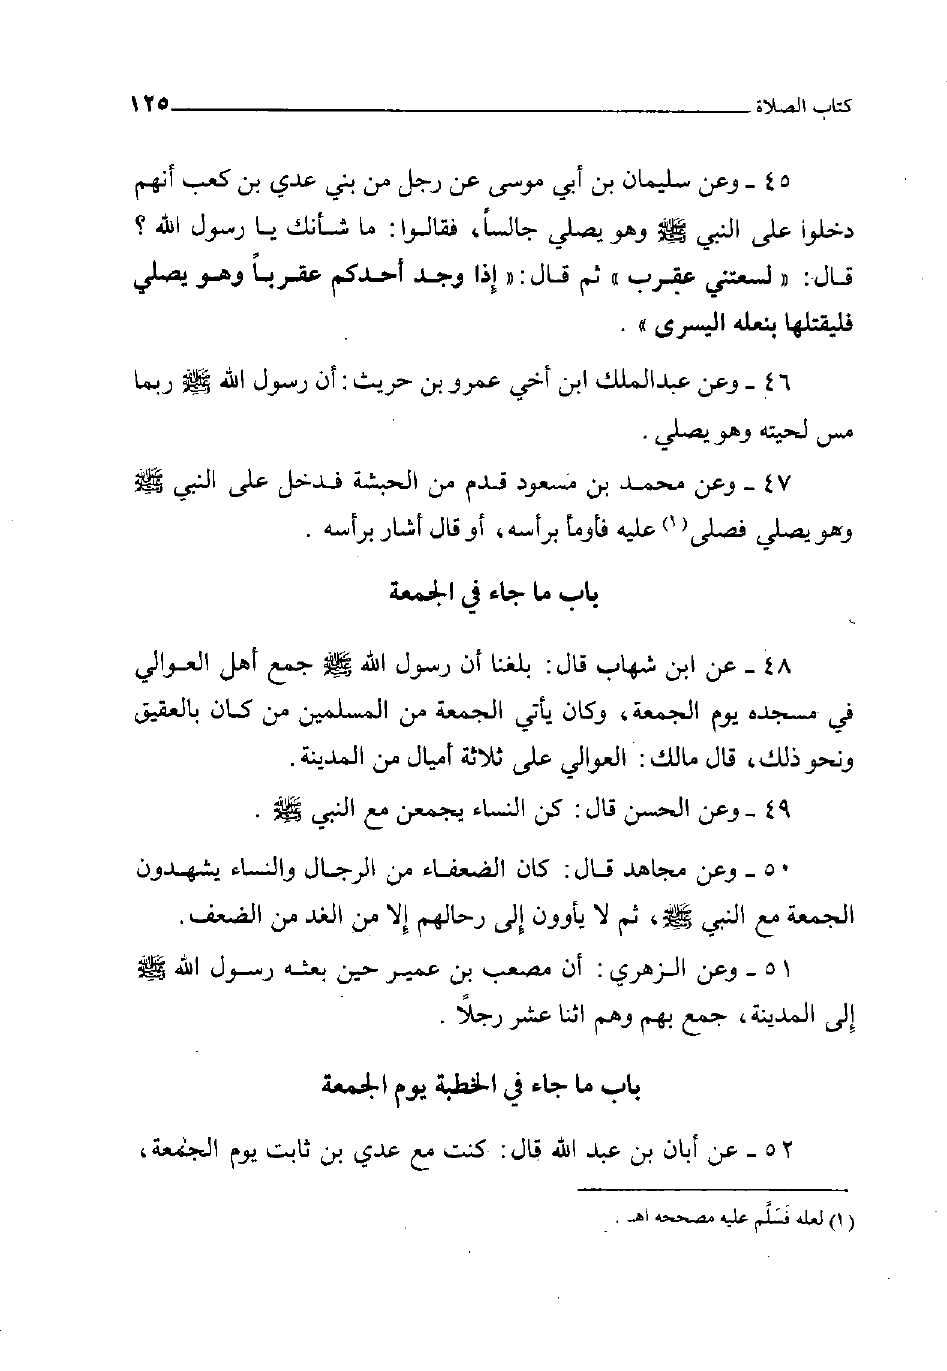 كتاب الصلاة ١٢٥
٤٥ ـ وعن سليمان بن أبي موسى عن رجل من بني عدي بن كعب أنهم
دخلوا على النبي ﷺ وهو يصلي جالساً، فقالوا: ما شأنك يا رسول الله ؟
قال: « لسعتني عقرب » ثم قال: « إذا وجد أحدكم عقرباً وهو يصلي
فليقتلها بنعله اليسرى » .
٤٦ ـ وعن عبدالملك ابن أخي عمرو بن حريث: أن رسول الله ﷺ ربما
مس لحيته وهو يصلي .
٤٧ ـ وعن محمد بن مسعود قدم من الحبشة فدخل على النبي ﷺ
وهو يصلي فصلى(١) عليه فأومأ برأسه، أو قال أشار برأسه .
باب ما جاء في الجمعة
٤٨ ـ عن ابن شهاب قال: بلغنا أن رسول الله ﷺ جمع أهل العوالي
في مسجده يوم الجمعة، وكان يأتي الجمعة من المسلمين من كان بالعقيق
ونحو ذلك، قال مالك: العوالي على ثلاثة أميال من المدينة .
٤٩ ـ وعن الحسن قال: كن النساء يجمعن مع النبي ﷺ .
٥٠ ـ وعن مجاهد قال: كان الضعفاء من الرجال والنساء يشهدون
الجمعة مع النبي ﷺ، ثم لا يأوون إلى رحالهم إلا من الغد من الضعف .
٥١ ـ وعن الزهري: أن مصعب بن عمير حين بعثه رسول الله ﷺ
إلى المدينة، جمع بهم وهم اثنا عشر رجلاً .
باب ما جاء في الخطبة يوم الجمعة
٥٢ ـ عن أبان بن عبد الله قال: كنت مع عدي بن ثابت يوم الجمعة،
(١) لعله فَسَلَّم عليه مصححه اهـ .